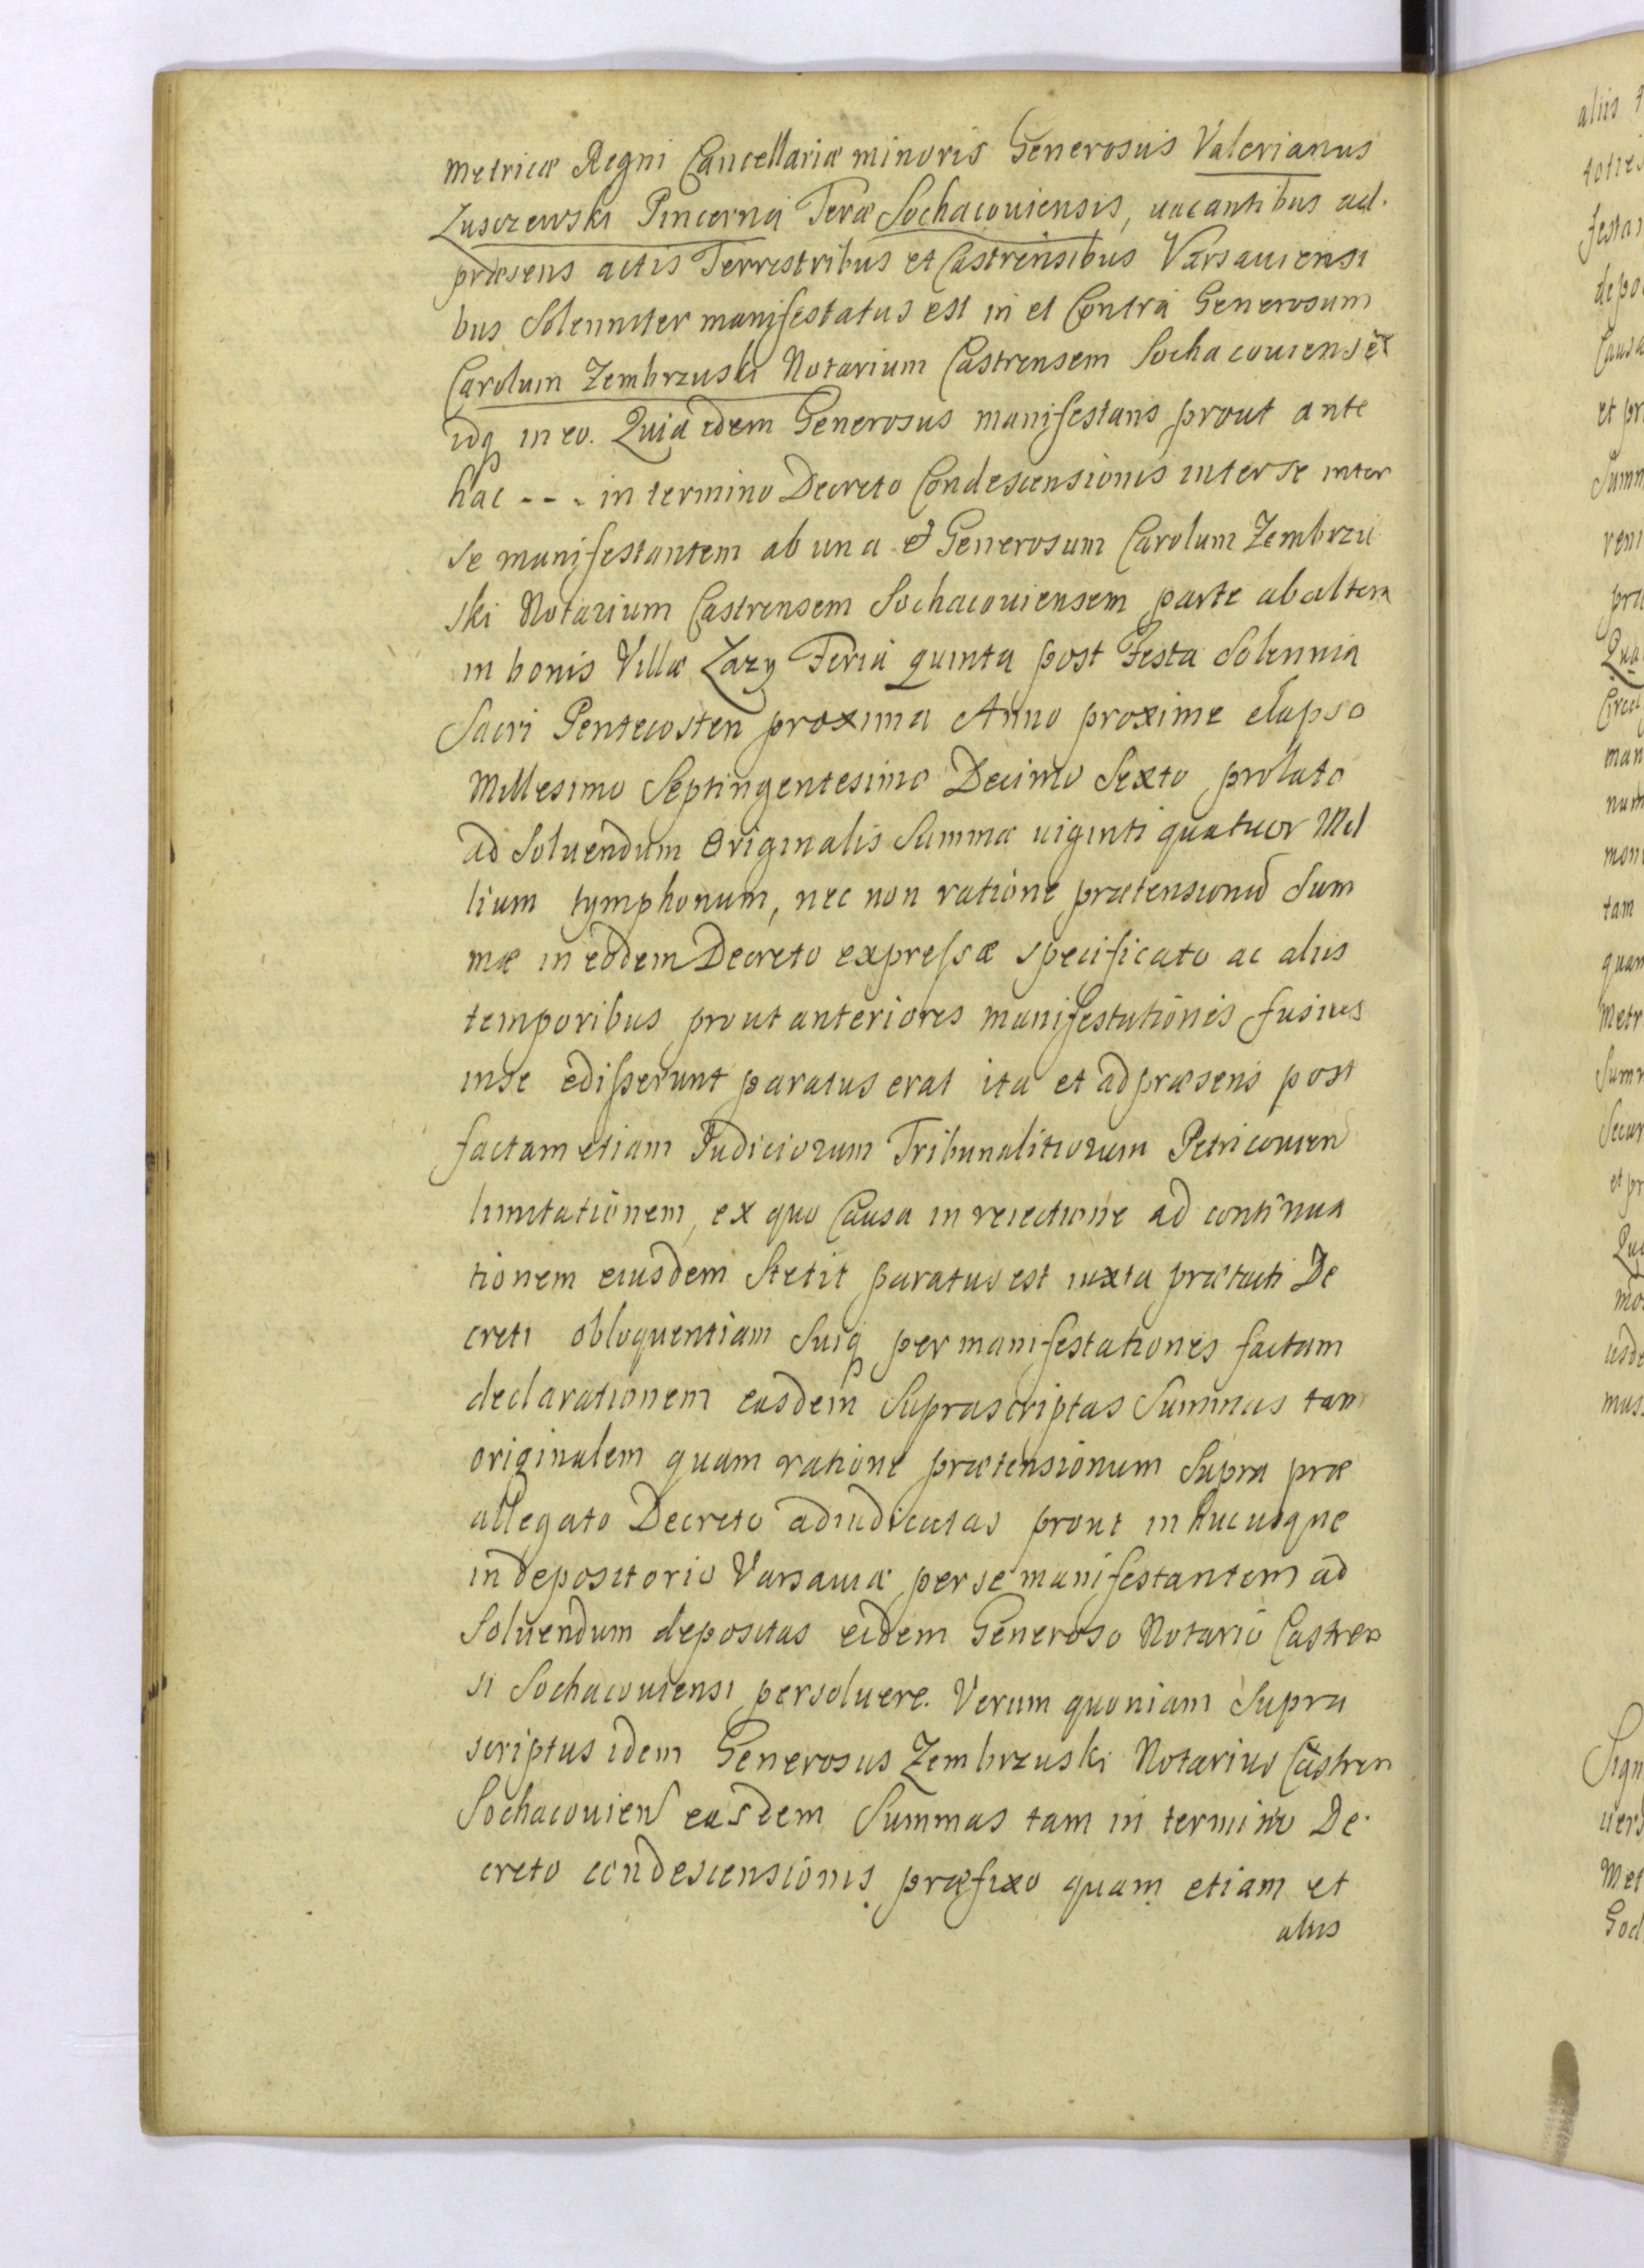 metricæ Regni Cancellariæ minoris Generosus Valerianus
Łusczewski Pincerna Teræ Sochacouiensis, uacantibus ad
præsens actis Terrestribus et Castrensibus Varsauiensi
bus Solenniter manifestatus est in et Contra Generosum
Carolum Zembrzuski Notarium Castrensem Sochacouiensē
idq in eo. Quia idem Generosus manifestans prout ante
hac - - - in termino Decreto Condescensionis inter se inter
se manifestantem ab una et Generosum Carolum Zembrzu
ski Notarium Castrensem Sochacouiensem parte ab altera
in bonis Villæ Łazy Feria quinta post Festa Solennia
Sacri Pentecosten proxima Anno proxime elapso
Millesimo Septingentesimo Decimo Sexto prolato
ad Soluendum Originalis Summæ uiginti quatuor Mil
lium tymphonum, nec non ratione prætensionū Sum
mæ in eodem Decreto expressæ specificato ac aliis
temporibus prout anteriores manifestationes fusius
in se edisserunt paratus erat ita et ad præsens post
factam etiam Judiciorum Tribunalitiorum Petricouien
limitationem, ex quo Causa in reiectione ad continua
tionem eiusdem Stetit paratus est iuxta prætacti De
creti obloquentiam Suiq per manifestationes factam
declarationem easdem Suprascriptas Summas tam
originalem quam ratione prætensionum Supra præ
allegato Decreto adiudicatas prout in hucusque
in depositorio Varsauiæ per se manifestantem ad
Soluendum depositas eidem Generoso Notario Castren
si Sochacouiensi persoluere. Verum quoniam Supra
scriptus idem Generosus Zembrzuski Notarius Castren
Sochacouien easdem Summas tam in termino De
creto condescensionis præfixo quam etiam et
aliis